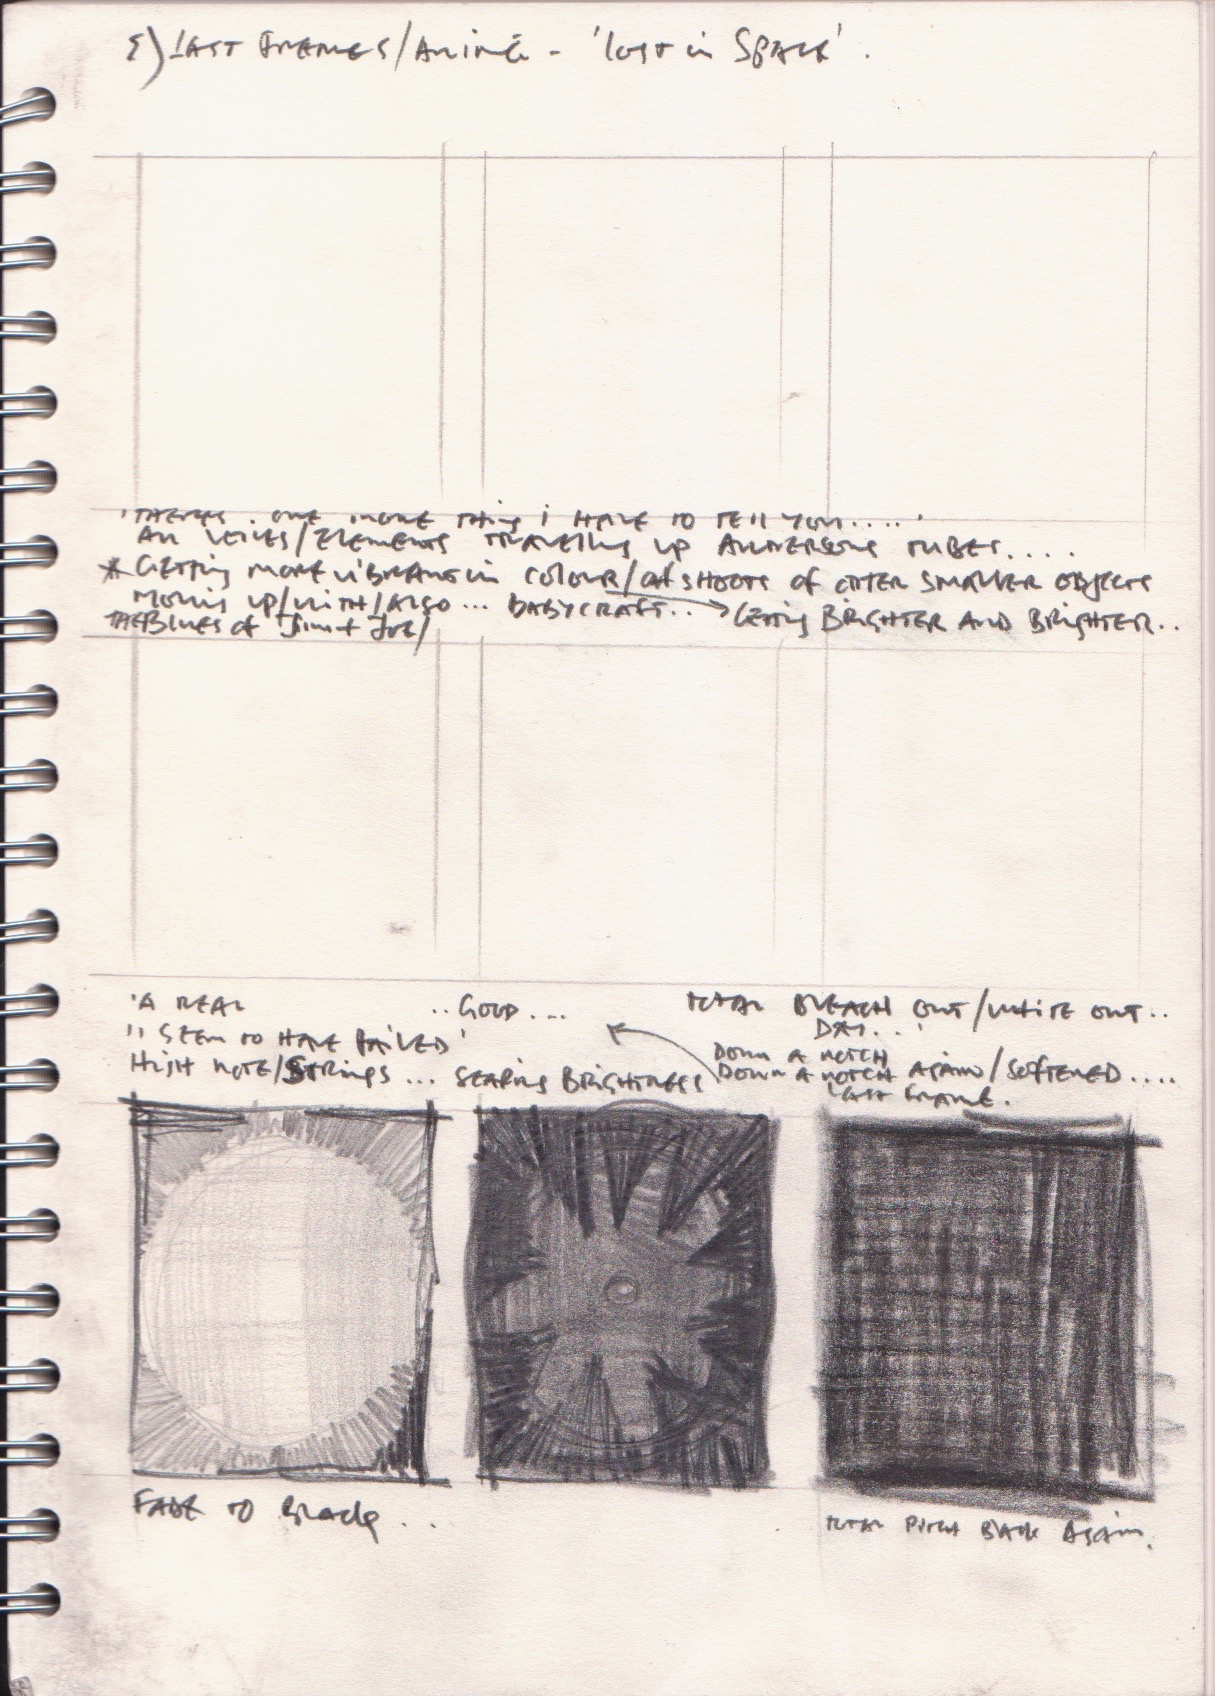 LAST FRAMES/ANIME - 'Lost in SPACE'.
'THERES . ONE MORE THING i HAVE TO TELL YOU....'
ALL VOICES/ELEMENTS TRAVELLING UP TUBES....
* GETTING MORE VIBRANT IN COLOUR/OFFSHOOTS of OTHER SMALLER OBJECTS
MOVING UP/WITH/ALSO... BABYCRAFT.. GETTING BRIGHTER AND BRIGHTER..
THE BLUES of
'A REAL ..GOOD... TOTAL BLEACH OUT/WHITE OUT..
DAY...'
'I SEEM TO HAVE FAILED'
DOWN A NOTCH
HIGH NOTE/STRINGS... SEARING BRIGHTNESS DOWN A NOTCH AGAIN/SOFTENED....
LAST FRAME.
FADE TO BLACK...
TOTAL PITCH BLACK AGAIN.